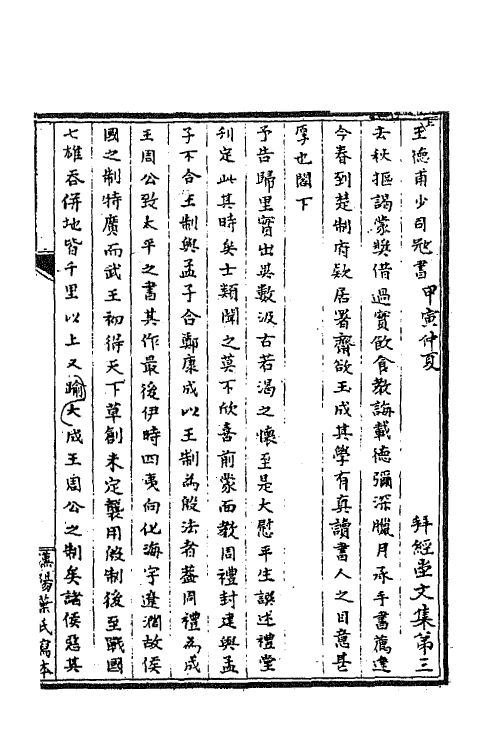 上王德甫少司寇書　甲寅仲夏　拜經堂文集第三
去秋摳謁蒙奬借過實飲食教誨載德彌深臘月承手書薦達
今春到楚制府欵居署齋欲玉成其學有真讀書人之目意甚
厚也閣下
予告歸里實出異數汲古若渴之懷至是大慰平生譔述禮堂
刋定此其時矣士類聞之莫不欣喜前蒙面教周禮封建與孟
子不合王制與孟子合鄭康成以王制為殷法者葢周禮為成
王周公致太平之書其作最後伊時四夷向化海宇遼濶故侯
國之制特廣而武王初得天下草創未定襲用殷制後至戰國
七雄吞併地皆千里以上又踰大成王周公之制矣諸侯惡其
漢陽葉氏寫本